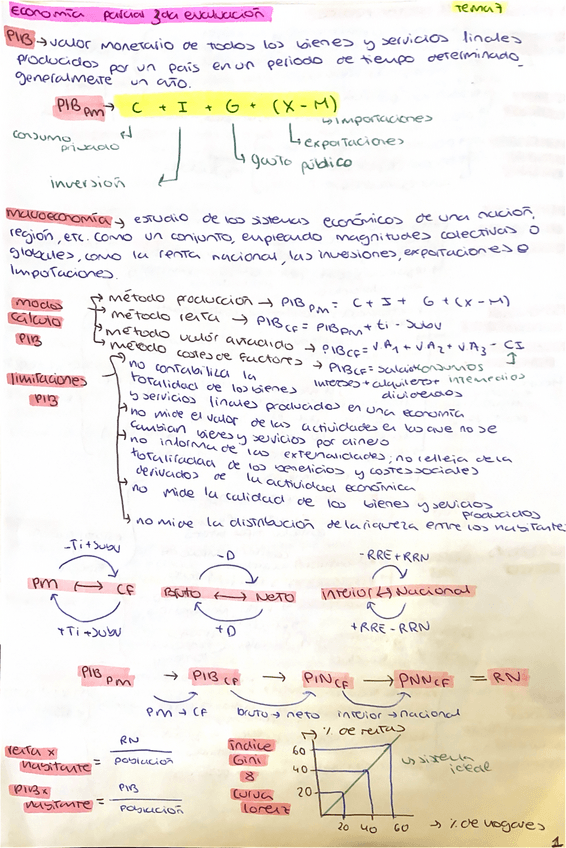 Economía parcial 3 2da evaluación
tema 7
PIB → valor monetario de todos los bienes y servicios finales
producidos por un país en un periodo de tiempo determinado,
generalmente un año.
PIB PM → C + I + G + (X - M)
↳ importaciones
consumo privado
↳ exportaciones
↳ gasto público
inversión
macroeconomía → estudio de los sistemas económicos de una nación,
región, etc. como un conjunto, empleando magnitudes colectivas o
globales, como la renta nacional, las inversiones, exportaciones e
importaciones.
modos cálculo PIB
método producción → PIB PM = C + I + G + (X - M)
método renta → PIB CF = PIB PM + ti - subv
método valor añadido → PIB CF = VA1 + VA2 + VA3 - CI
método costes de factores → PIB CF = salarios
consumos intermedios
intereses + alquileres + dividendos
limitaciones PIB
no contabiliza la
totalidad de los bienes
y servicios finales producidos en una economía
no mide el valor de las actividades en las que no se
cambian bienes y servicios por dinero
no informa de las externalidades; no refleja de la
totalidad de los beneficios y costes sociales
derivados de la actividad económica
no mide la calidad de los bienes y servicios
producidos
no mide la distribución de la riqueza entre los habitantes
-Ti + subv
-D
-RRE + RRN
PM ↔ CF
Bruto ↔ Neto
Interior ↔ Nacional
+Ti + subv
+D
+RRE - RRN
PIB PM → PIB CF → PIN CF → PNN CF = RN
PM → CF
bruto → neto
interior → nacional
renta x habitante = RN / población
PIB x habitante = PIB / población
índice Gini
&
curva Lorenz
→ % de rentas
60
40
20
↳ sistema ideal
20 40 60
→ % de hogares
1